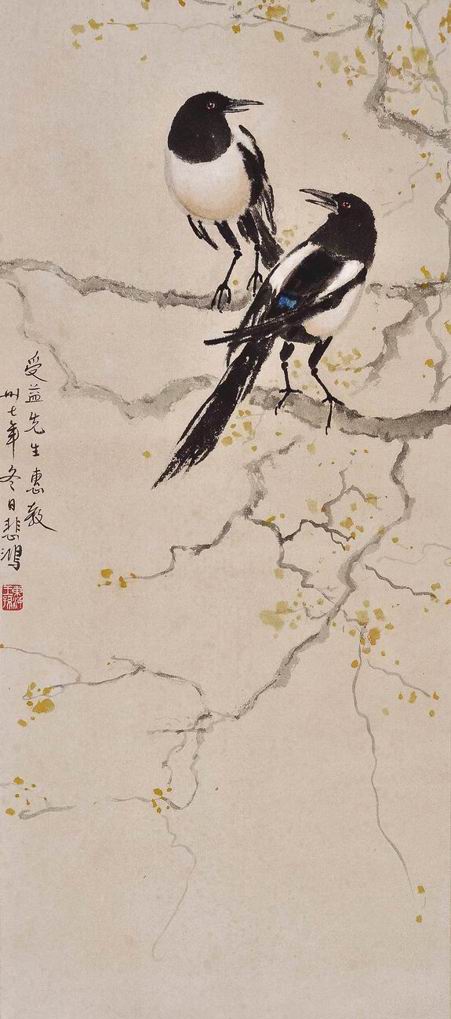 受益先生惠教
卅七年冬日悲鴻